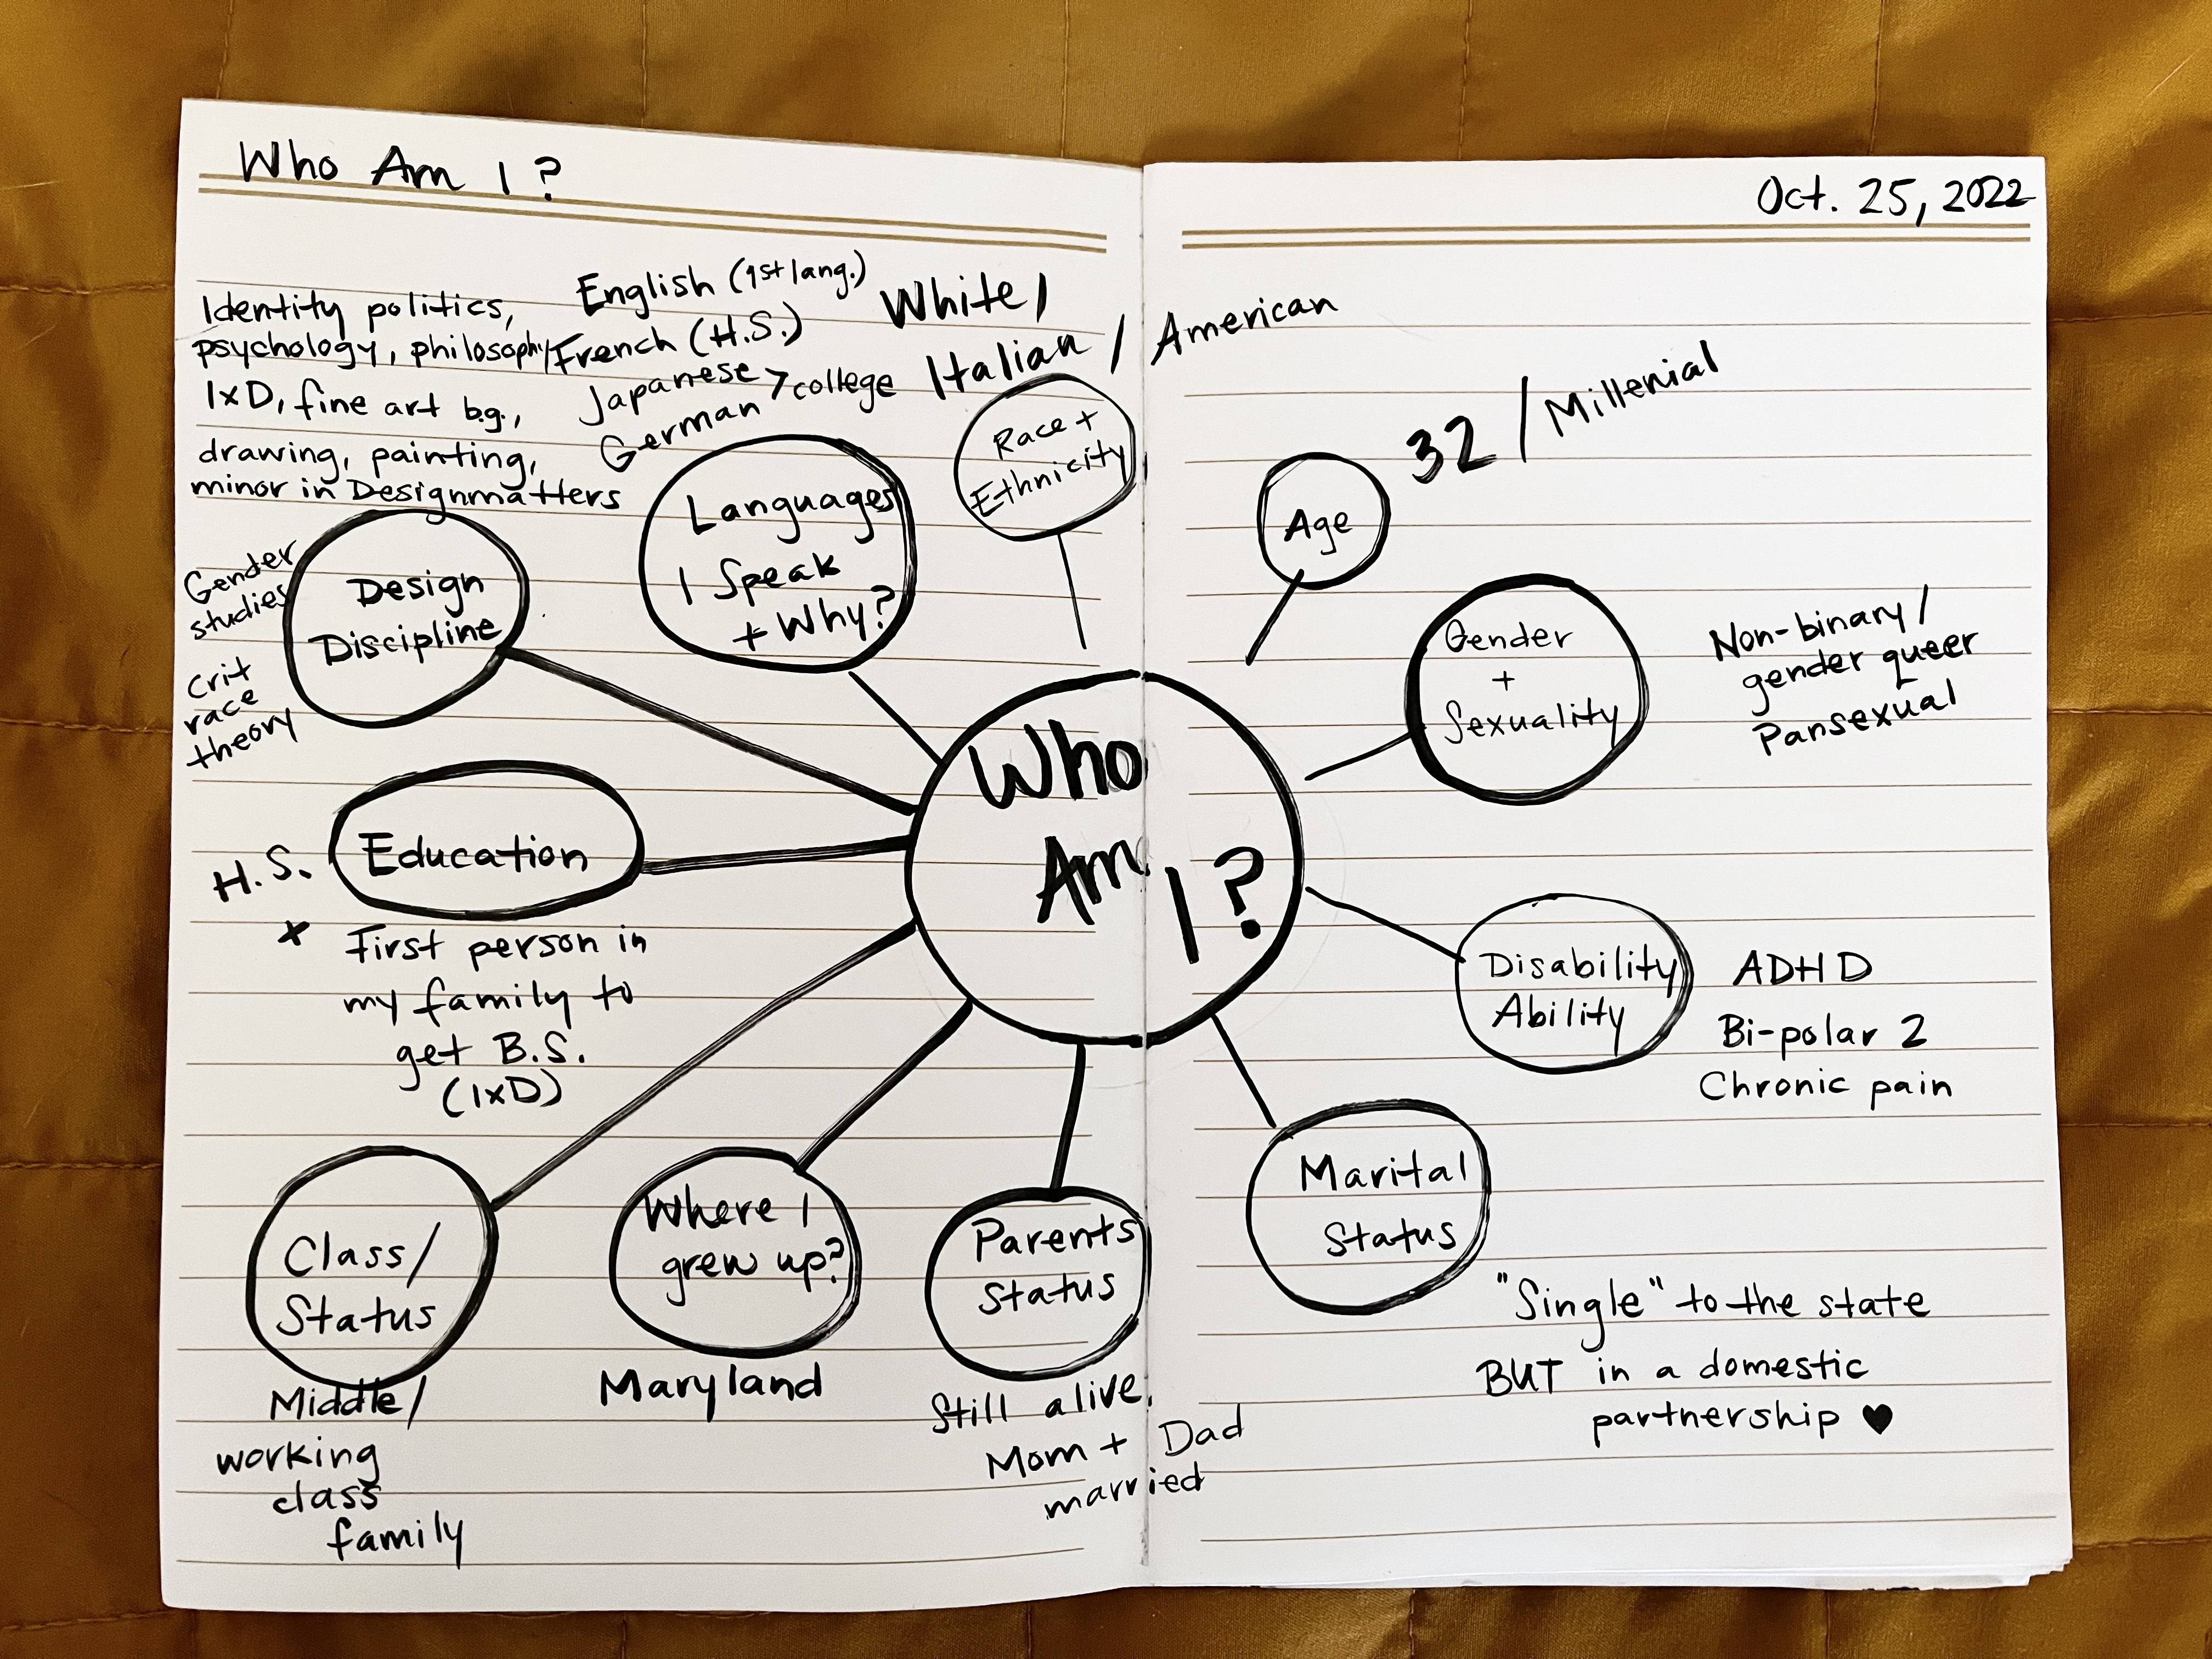 Who Am I?
Oct. 25, 2022
Identity politics,
psychology, philosophy
IxD, fine art b.g.,
drawing, painting,
minor in Designmatters
Gender
studies
Crit
race
theory
Design
Discipline
English (1st lang.)
French (H.S.)
Japanese > college
German
Languages
I Speak
+ Why?
White/
Italian / American
Race +
Ethnicity
32 / Millenial
Age
Gender
+
Sexuality
Non-binary/
gender queer
Pansexual
Who
Am I?
H.S.
Education
+ First person in
my family to
get B.S.
(IxD)
Disability
Ability
ADHD
Bi-polar 2
Chronic pain
Class/
Status
Middle/
working
class
family
Where I
grew up?
Maryland
Parents
Status
Still alive.
Mom + Dad
married
Marital
Status
"Single" to the state
BUT in a domestic
partnership ♥